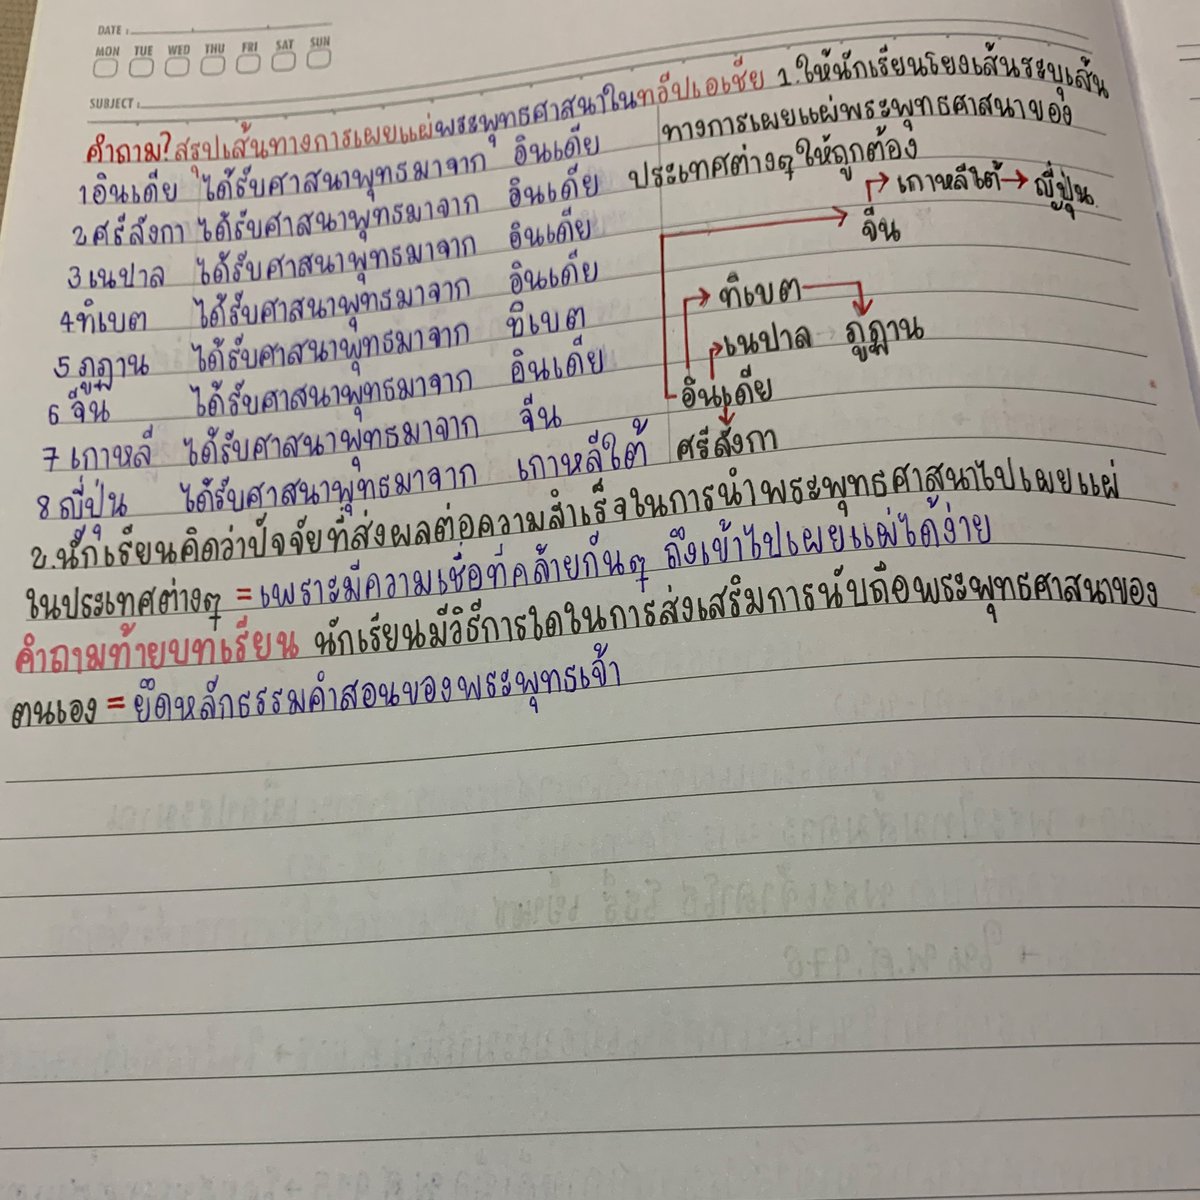 DATE :
MON TUE WED THU FRI SAT SUN
SUBJECT :
คำถาม? สรุปเส้นทางการเผยแผ่พระพุทธศาสนาในทวีปเอเชีย
1 อินเดีย ได้รับศาสนาพุทธมาจาก อินเดีย
2 ศรีลังกา ได้รับศาสนาพุทธมาจาก อินเดีย
3 เนปาล ได้รับศาสนาพุทธมาจาก อินเดีย
4 ทิเบต ได้รับศาสนาพุทธมาจาก อินเดีย
5 ภูฏาน ได้รับศาสนาพุทธมาจาก ทิเบต
6 จีน ได้รับศาสนาพุทธมาจาก อินเดีย
7 เกาหลี ได้รับศาสนาพุทธมาจาก จีน
8 ญี่ปุ่น ได้รับศาสนาพุทธมาจาก เกาหลีใต้
1. ให้นักเรียนโยงเส้นระบุเส้น
ทางการเผยแผ่พระพุทธศาสนาของ
ประเทศต่างๆ ให้ถูกต้อง
→ เกาหลีใต้ → ญี่ปุ่น
จีน
→ ทิเบต
→ เนปาล ภูฏาน
อินเดีย
ศรีลังกา
2. นักเรียนคิดว่าปัจจัยที่ส่งผลต่อความสำเร็จในการนำพระพุทธศาสนาไปเผยแผ่
ในประเทศต่างๆ = เพราะมีความเชื่อที่คล้ายกันๆ ถึงเข้าไปเผยแผ่ได้ง่าย
คำถามท้ายบทเรียน นักเรียนมีวิธีการใดในการส่งเสริมการนับถือพระพุทธศาสนาของ
ตนเอง = ยึดหลักธรรมคำสอนของพระพุทธเจ้า